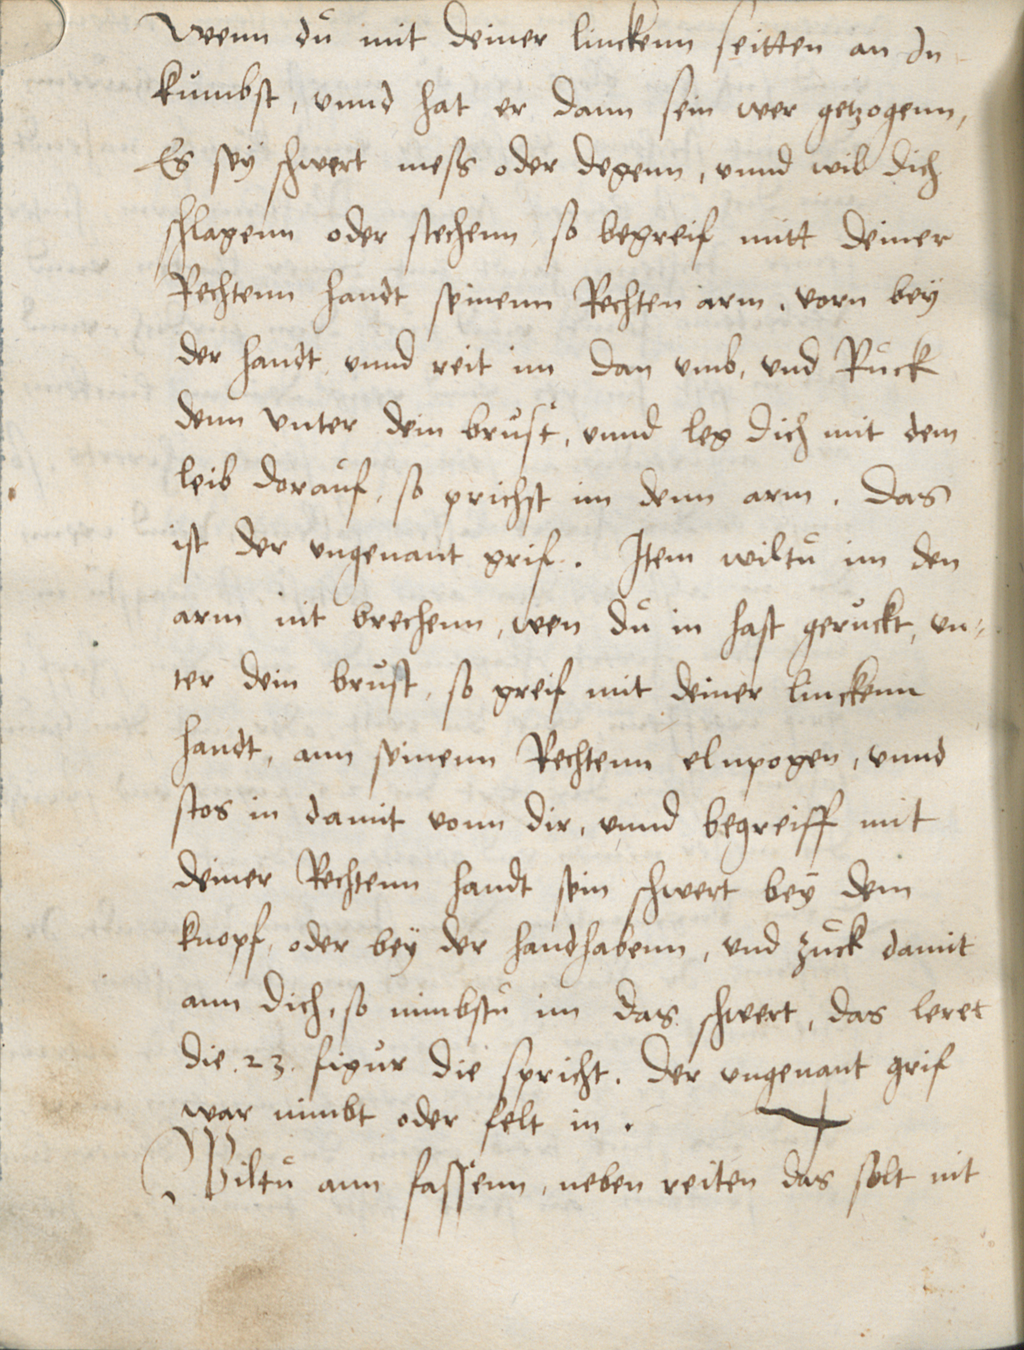 Wenn dů mit deiner linckenn seitten an In
kůmbst, vnnd hat er dann sein wer getzogenn,
Es seÿ schwert mess oder degenn, vnnd wil dich
schlagenn oder stechenn, so begreif mitt deiner
Rechtenn handt seinenn Rechten arm, vorn beÿ
der handt vnnd reit im dan vmb, vnd Růck
denn vnter dein brůst, vnnd leg dich mit dem
leib dorauf, so prichst im denn arm. Das
ist der vngenant grif. Item wiltů im den
arm nit brechenn, wen dů in hast gerůckt, vn=
ter dein brůst, so greif mit deiner linckenn
handt, ann seinenn Rechtenn elnpogen, vnnd
stos in damit vonn dir, vnnd begreiff mit
deiner Rechtenn handt sein schwert beÿ dem
knopf, oder beÿ der handhabenn, vnd zůck damit
ann dich, so nimbstů im das schwert, das leret
die .23. figůr die spricht. Der vngenant grif
war nimbt oder felt in.
Wiltů ann fassenn, neben reiten das solt nit